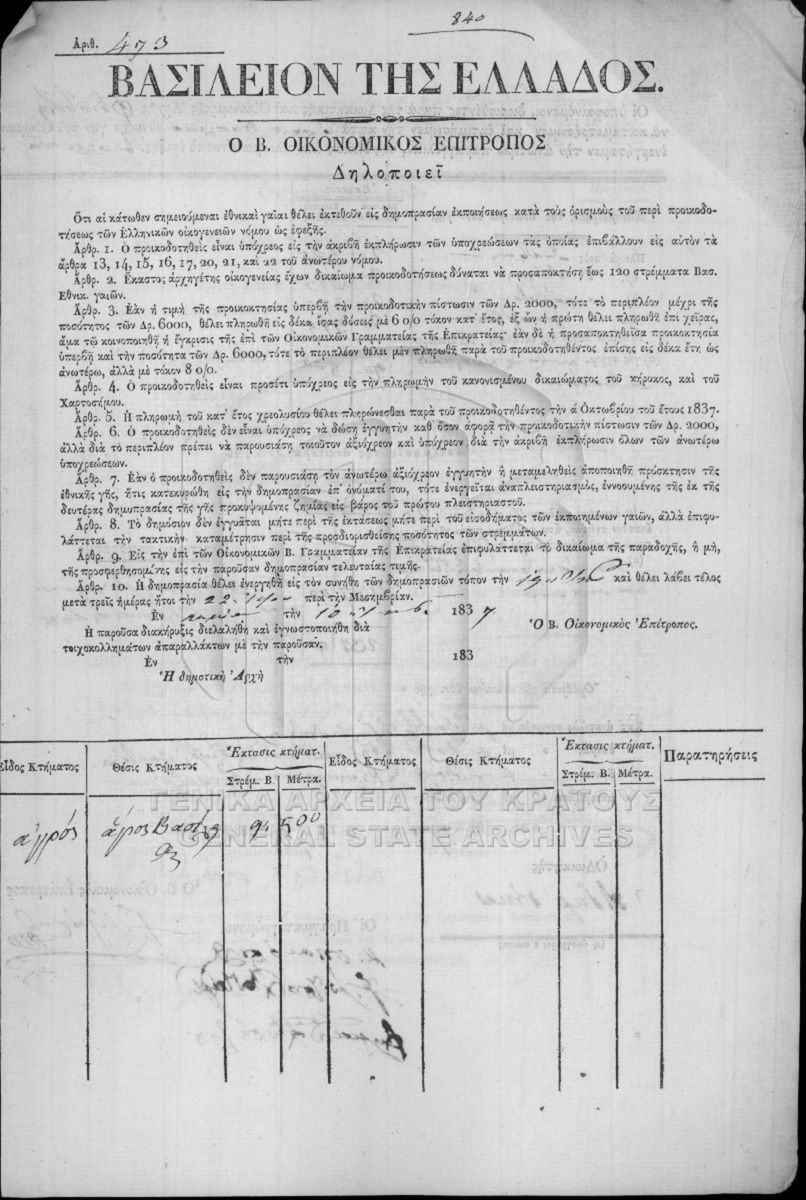 840
Ἀριθ. 473
ΒΑΣΙΛΕΙΟΝ ΤΗΣ ΕΛΛΑΔΟΣ.
Ο Β. ΟΙΚΟΝΟΜΙΚΟΣ ΕΠΙΤΡΟΠΟΣ
Δηλοποιεῖ
Ὅτι αἱ κάτωθεν σημειούμεναι ἐθνικαὶ γαῖαι θέλει ἐκτεθοῦν εἰς δημοπρασίαν ἐκποιήσεως κατὰ τοὺς ὁρισμοὺς τοῦ περὶ προικοδο-
τήσεως τῶν Ἑλληνικῶν οἰκογενειῶν νόμου ὡς ἐφεξῆς.
Ἄρθρ. 1. Ὁ προικοδοτηθεὶς εἶναι ὑπόχρεος εἰς τὴν ἀκριβῆ ἐκπλήρωσιν τῶν ὑποχρεώσεων τὰς ὁποίας ἐπιβάλλουν εἰς αὐτὸν τὰ
ἄρθρα 13, 14, 15, 16, 17, 20, 21, καὶ 22 τοῦ ἀνωτέρω νόμου.
Ἄρθρ. 2. Ἕκαστος ἀρχηγέτης οἰκογενείας ἔχων δικαίωμα προικοδοτήσεως δύναται νὰ προσαποκτήσῃ ἕως 120 στρέμματα Βασ.
Ἐθνικ. γαιῶν.
Ἄρθρ. 3. Ἐὰν ἡ τιμὴ τῆς προικοκτησίας ὑπερβῇ τὴν προικοδοτικὴν πίστωσιν τῶν Δρ. 2000, τότε τὸ περιπλέον μέχρι τῆς
ποσότητος τῶν Δρ. 6000, θέλει πληρωθῆ εἰς δέκα ἴσας δόσεις μὲ 6 0/0 τόκον κατ' ἔτος, ἐξ ὧν ἡ πρώτη θέλει πληρωθῆ ἐπὶ χεῖρας,
ἅμα τῷ κοινοποιηθῇ ἡ ἔγκρισις τῆς ἐπὶ τῶν Οἰκονομικῶν Γραμματείας τῆς Ἐπικρατείας· ἐὰν δὲ ἡ προσαποκτηθεῖσα προικοκτησία
ὑπερβῇ καὶ τὴν ποσότητα τῶν Δρ. 6000, τότε τὸ περιπλέον θέλει μὲν πληρωθῆ παρὰ τοῦ προικοδοτηθέντος ἐπίσης εἰς δέκα ἔτη ὡς
ἀνωτέρω, ἀλλὰ μὲ τόκον 8 0/0.
Ἄρθρ. 4. Ὁ προικοδοτηθεὶς εἶναι προσέτι ὑπόχρεος εἰς τὴν πληρωμὴν τοῦ κανονισμένου δικαιώματος τοῦ κήρυκος, καὶ τοῦ
Χαρτοσήμου.
Ἄρθρ. 5. Ἡ πληρωμὴ τοῦ κατ' ἔτος χρεολυσίου θέλει πληρώνεσθαι παρὰ τοῦ προικοδοτηθέντος τὴν ά Ὀκτωβρίου τοῦ ἔτους 1837.
Ἄρθρ. 6. Ὁ προικοδοτηθεὶς δὲν εἶναι ὑπόχρεος νὰ δώσῃ ἐγγυητὴν καθ' ὅσον ἀφορᾷ τὴν προικοδοτικὴν πίστωσιν τῶν Δρ. 2000,
ἀλλὰ διὰ τὸ περιπλέον πρέπει νὰ παρουσιάσῃ τοιοῦτον ἀξιόχρεον καὶ ὑπόχρεον διὰ τὴν ἀκριβῆ ἐκπλήρωσιν ὅλων τῶν ἀνωτέρω
ὑποχρεώσεων.
Ἄρθρ. 7. Ἐὰν ὁ προικοδοτηθεὶς δὲν παρουσιάσῃ τὸν ἀνωτέρω ἀξιόχρεον ἐγγυητὴν ἢ μεταμεληθεὶς ἀποποιηθῇ πρόσκτησιν τῆς
ἐθνικῆς γῆς, ἥτις κατεκυρώθη εἰς τὴν δημοπρασίαν ἐπ' ὀνόματί του, τότε ἐνεργεῖται ἀναπλειστηριασμὸς, ἐννοουμένης τῆς ἐκ τῆς
δευτέρας δημοπρασίας τῆς γῆς προκυψομένης ζημίας εἰς βάρος τοῦ πρώτου πλειστηριαστοῦ.
Ἄρθρ. 8. Τὸ δημόσιον δὲν ἐγγυᾶται μήτε περὶ τῆς ἐκτάσεως μήτε περὶ τοῦ εἰσοδήματος τῶν ἐκποιημένων γαιῶν, ἀλλὰ ἐπιφυ-
λάττεται τὴν τακτικὴν καταμέτρησιν περὶ τῆς προσδιορισθείσης ποσότητος τῶν στρεμμάτων.
Ἄρθρ. 9. Εἰς τὴν ἐπὶ τῶν Οἰκονομικῶν Β. Γραμματείαν τῆς Ἐπικρατείας ἐπιφυλάττεται τὸ δικαίωμα τῆς παραδοχῆς, ἢ μὴ,
τῆς προσφερθησομένης εἰς τὴν παροῦσαν δημοπρασίαν τελευταίας τιμῆς.
Ἄρθρ. 10. Ἡ δημοπρασία θέλει ἐνεργηθῆ εἰς τὸν συνήθη τῶν δημοπρασιῶν τόπον τὴν 19 καὶ θέλει λάβει τέλος
μετὰ τρεῖς ἡμέρας ἤτοι τὴν 22 περὶ τὴν Μεσημβρίαν.
Ἐν τὴν 10 1837
Ὁ Β. Οἰκονομικὸς Ἐπίτροπος.
Ἡ παροῦσα διακήρυξις διελαλήθη καὶ ἐγνωστοποιήθη διὰ
τοιχοκολλημάτων ἀπαραλλάκτων μὲ τὴν παροῦσαν.
Ἐν τὴν 183
Ἡ δημοτικὴ Ἀρχὴ
Εἶδος Κτήματος Θέσις Κτήματος Ἔκτασις κτήματ. Εἶδος Κτήματος Θέσις Κτήματος Ἔκτασις κτήματ. Παρατηρήσεις
Στρέμ. Β. Μέτρα. Στρέμ. Β. Μέτρα.
ἀγρός ἅγιος Βασίλ 9. 500
ΓΕΝΙΚΑ ΑΡΧΕΙΑ ΤΟΥ ΚΡΑΤΟΥΣ
GENERAL STATE ARCHIVES